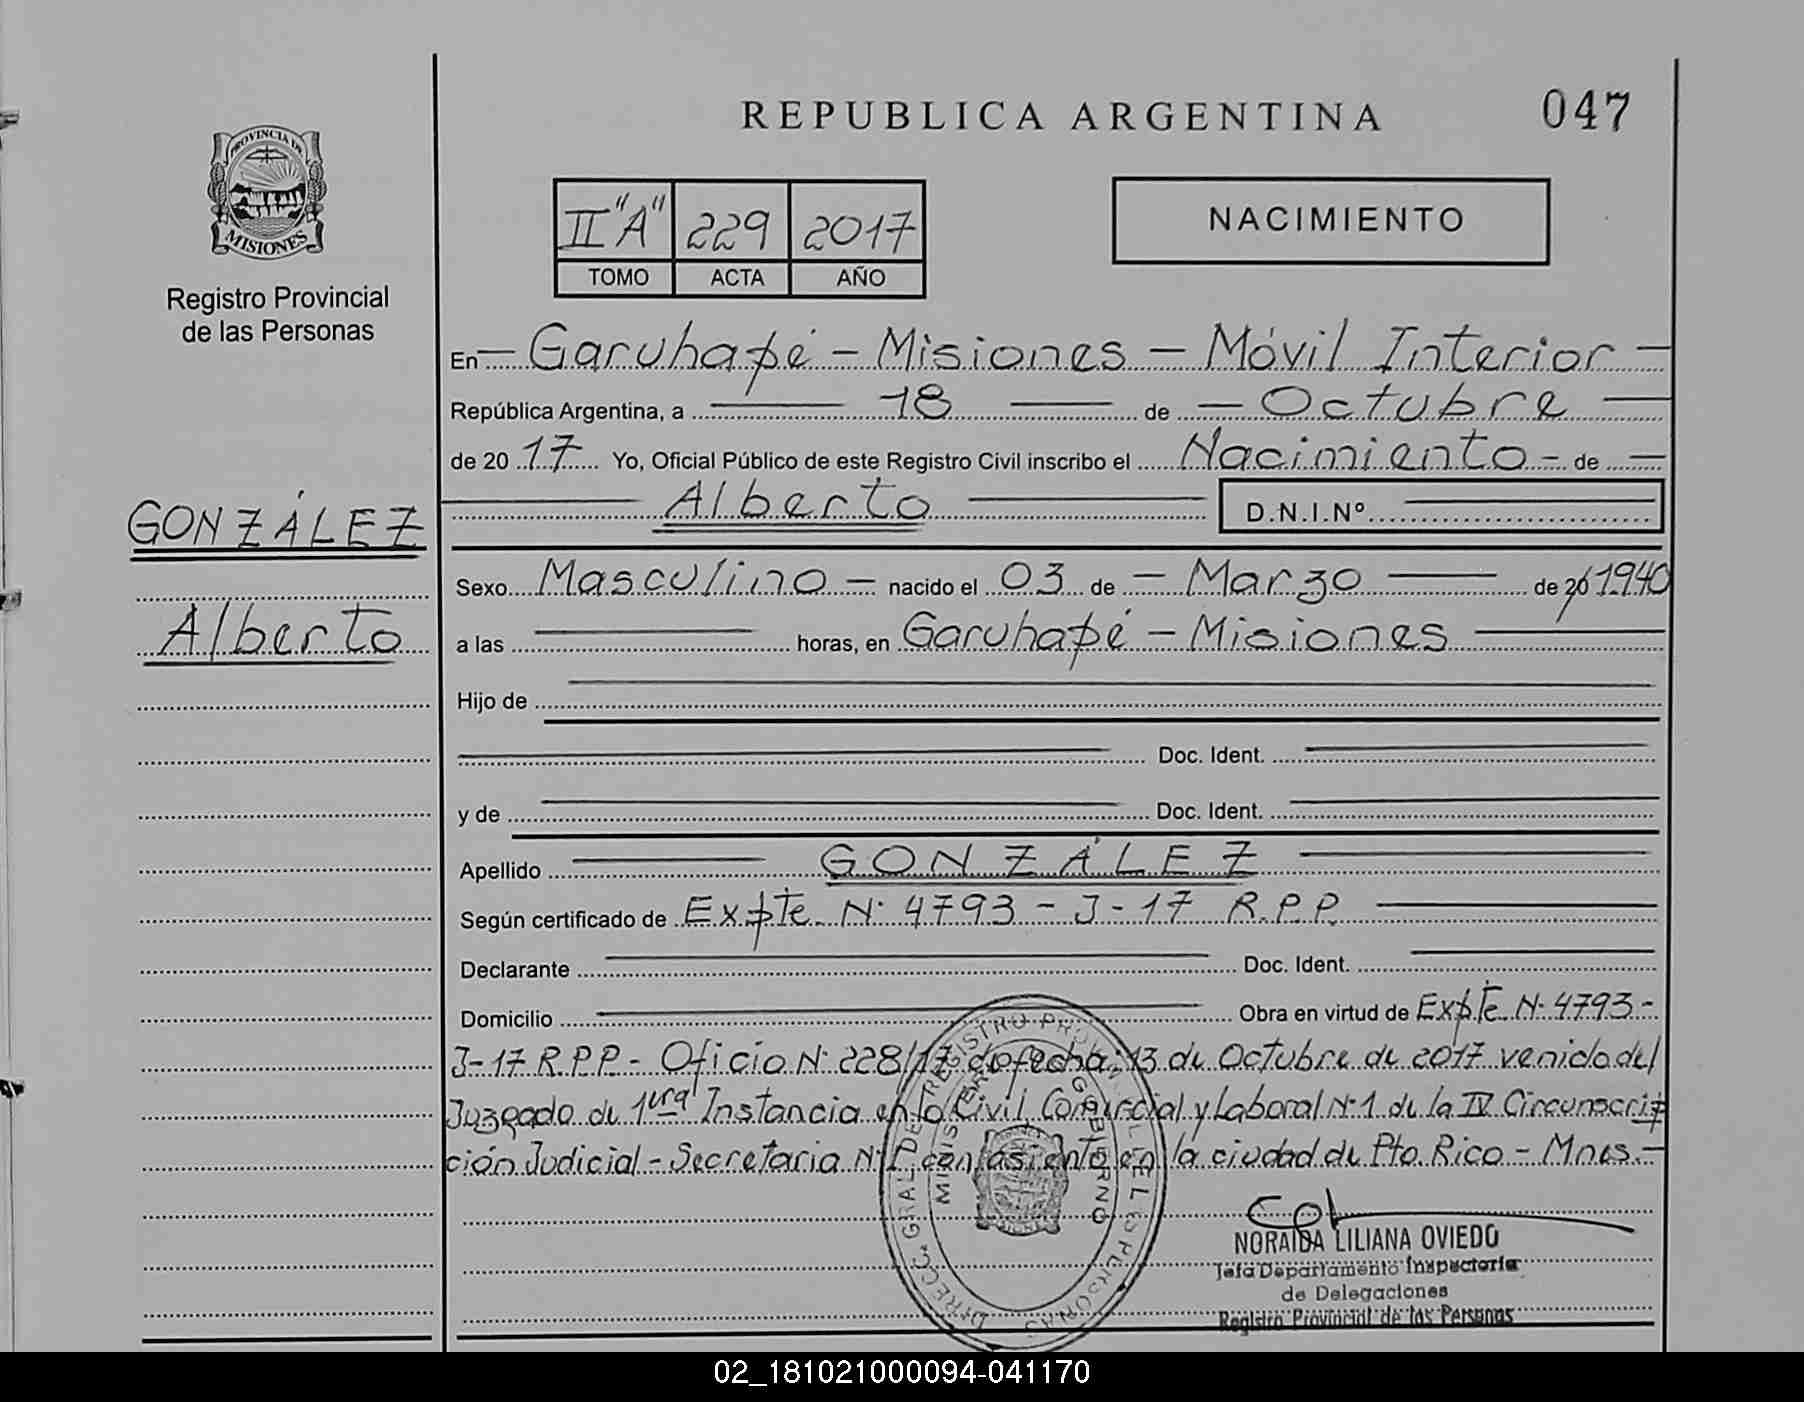 REPUBLICA ARGENTINA
047
PROVINCIA DE
MISIONES
Registro Provincial
de las Personas
II "A" 229 2017
TOMO ACTA AÑO
NACIMIENTO
En Garuhapé - Misiones - Móvil Interior
República Argentina, a 18 de Octubre
de 20 17 Yo, Oficial Público de este Registro Civil inscribo el Nacimiento de
Alberto D.N.I.Nº
GONZÁLEZ
Alberto
Sexo Masculino nacido el 03 de Marzo de 20 1940
a las horas, en Garuhapé - Misiones
Hijo de
Doc. Ident.
y de Doc. Ident.
Apellido GONZÁLEZ
Según certificado de Expte. Nº 4793 - J - 17 R.P.P.
Declarante Doc. Ident.
Domicilio Obra en virtud de Expte. Nº 4793-
J-17 R.P.P. - Oficio Nº 228/17 de fecha: 13 de Octubre de 2017 venido del
Juzgado de 1era Instancia en lo Civil, Comercial y Laboral Nº 1 de la IV Circunscrip
ción Judicial - Secretaria Nº con asiento en la ciudad de Pto. Rico - Mnes.-
DIRECC. GRAL. DEL REGISTRO PROVINCIAL DE LAS PERSONAS
MINISTERIO DE GOBIERNO
NORAIDA LILIANA OVIEDO
Jefa Departamento Inspectoria
de Delegaciones
Registro Provincial de las Personas
02_181021000094-041170